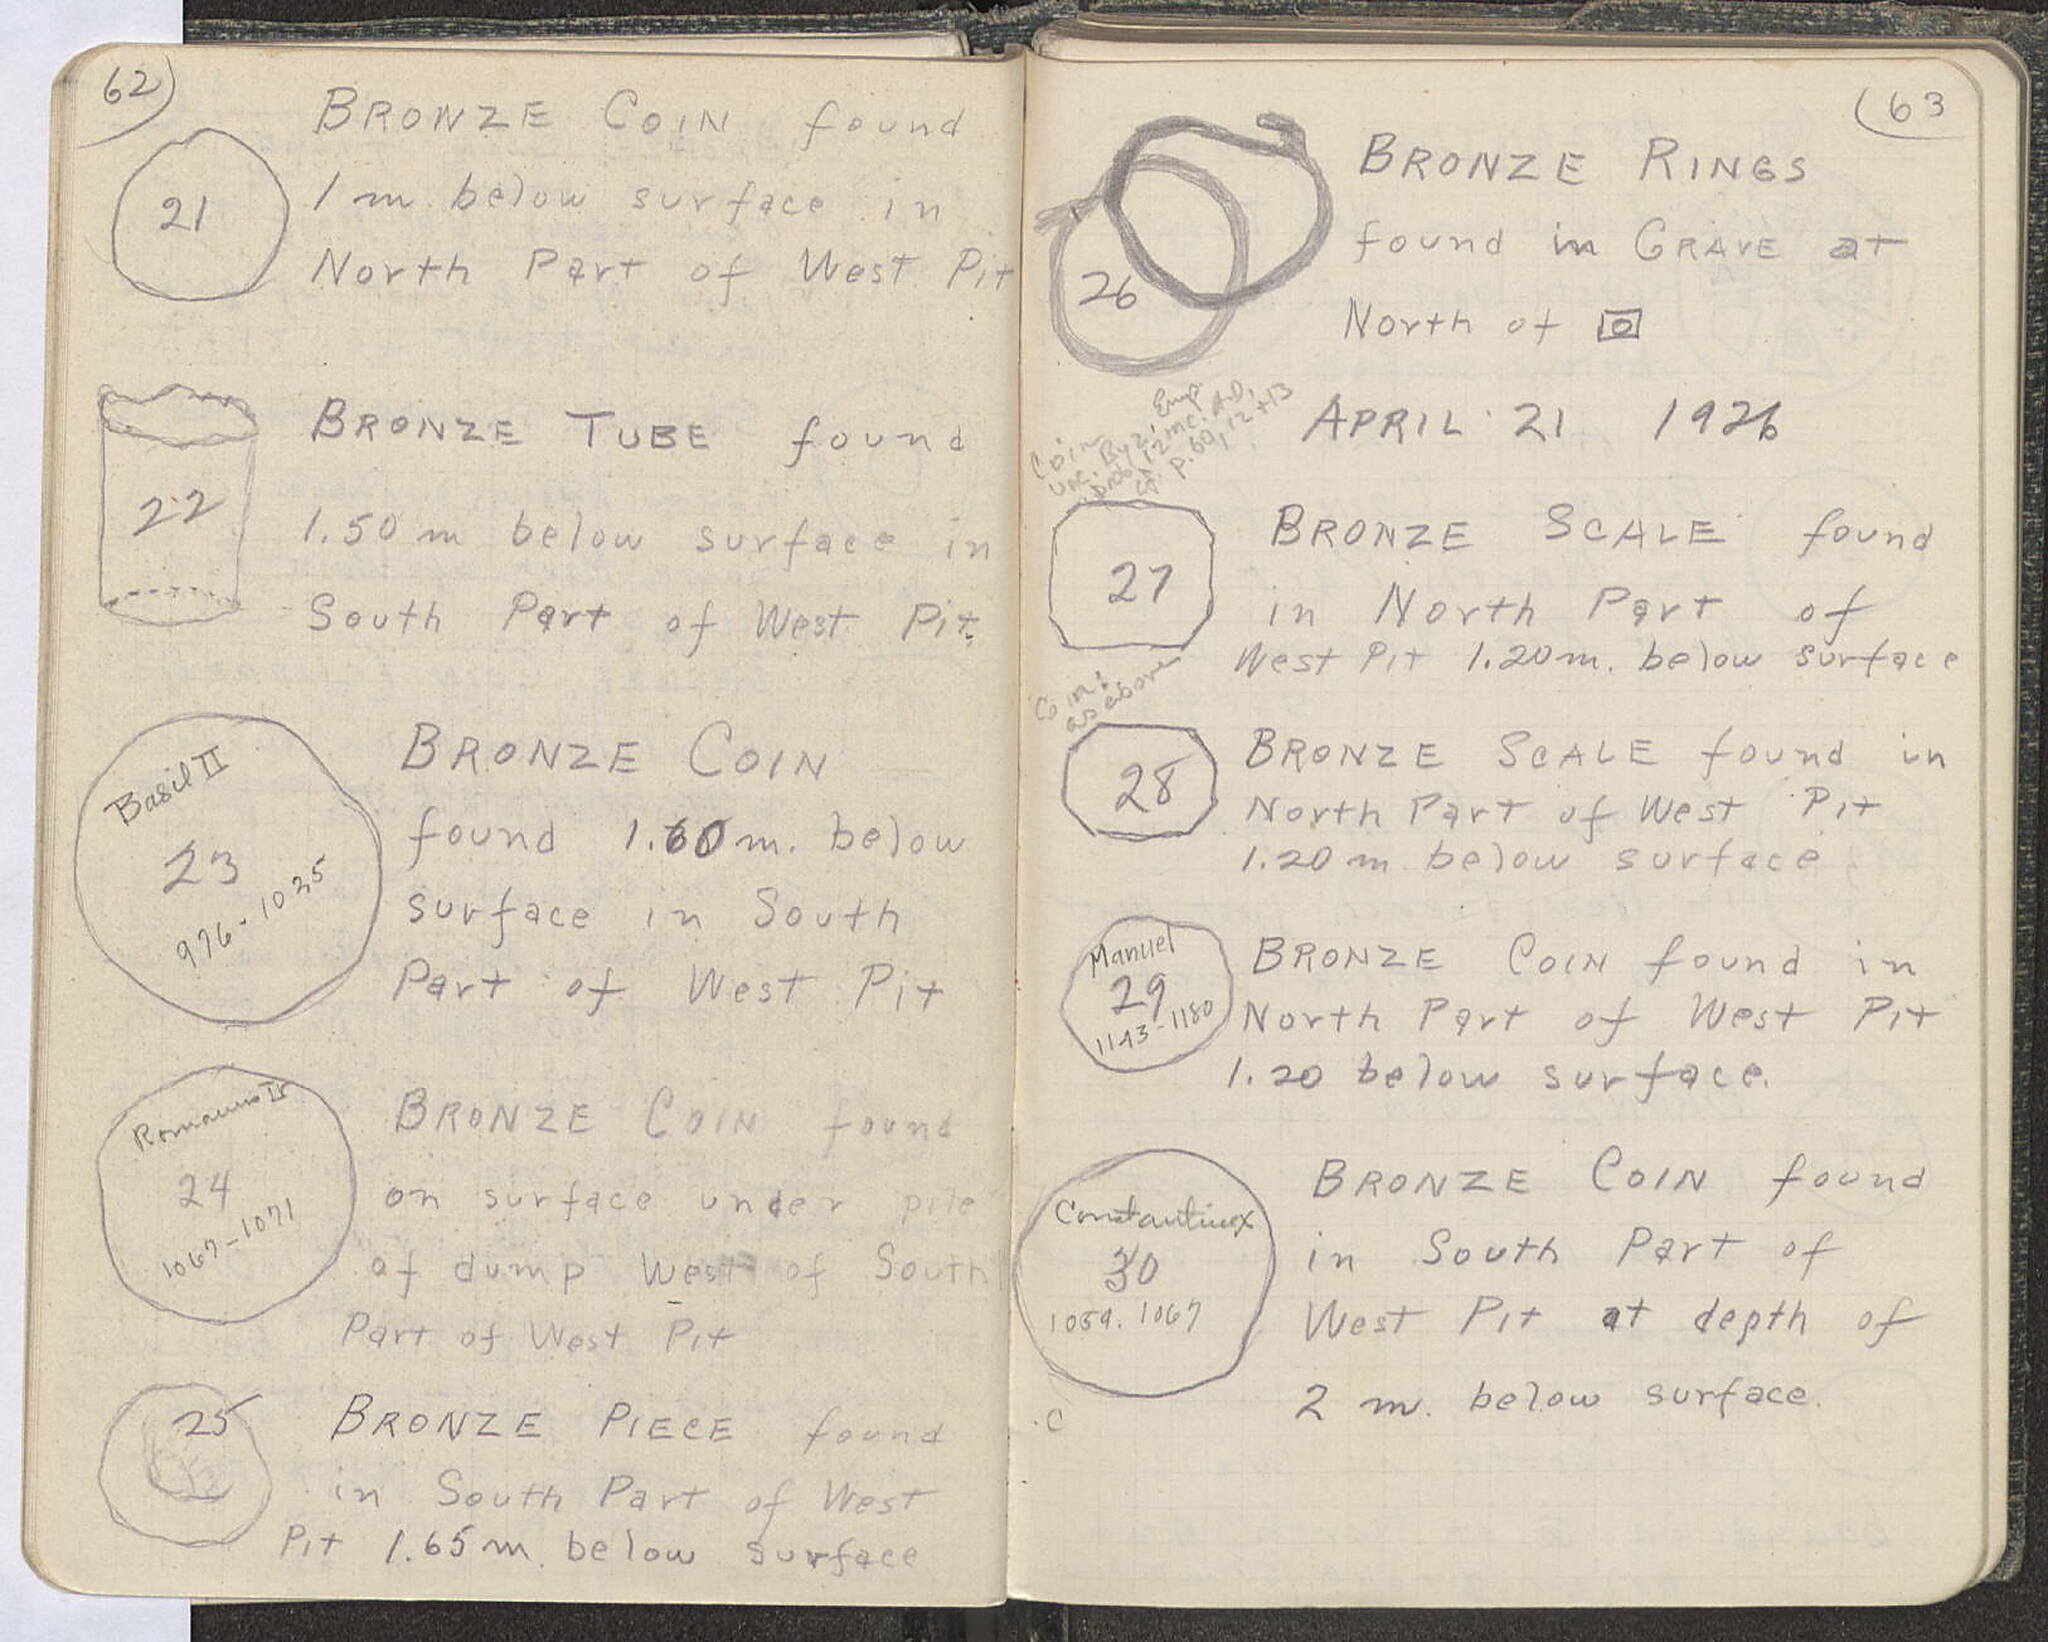 62
21
BRONZE COIN found
1 m below surface in
North Part of West Pit
22
BRONZE TUBE found
1.50 m below surface in
South Part of West Pit.
Basil II
23
976-1025
BRONZE COIN
found 1.60 m. below
surface in South
Part of West Pit
Romanus IV
24
1067-1071
BRONZE COIN found
on surface under pile
of dump West of South
Part of West Pit
25
BRONZE PIECE found
in South Part of West
Pit 1.65 m. below surface
63
26
BRONZE RINGS
found in GRAVE at
North of
APRIL 21 1926
Coin
unc. Byz. Emp.
prob. 12th c. A.D.
cf. p. 60, 12+13
27
BRONZE SCALE found
in North Part of
West Pit 1.20 m. below surface
Coin:
as above
28
BRONZE SCALE found in
North Part of West Pit
1.20 m below surface
Manuel
29
1143-1180
BRONZE COIN found in
North Part of West Pit
1.20 below surface.
Constantine X
30
1059-1067
BRONZE COIN found
in South Part of
West Pit at depth of
2 m. below surface.
C